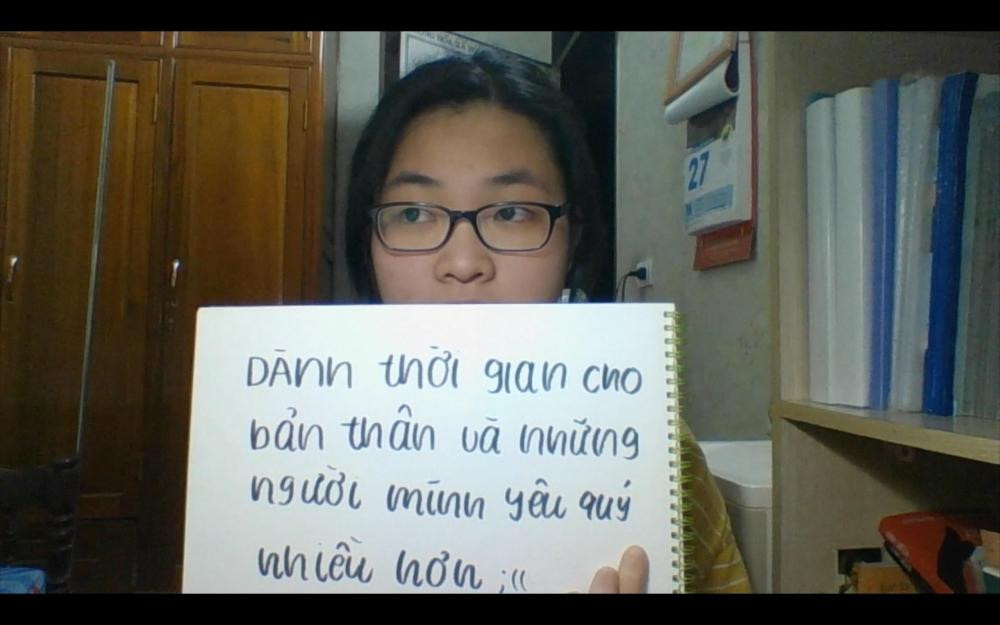 DÀnh thời gian cho
bản thân và những
người mình yêu quý
nhiều hơn ;((
27